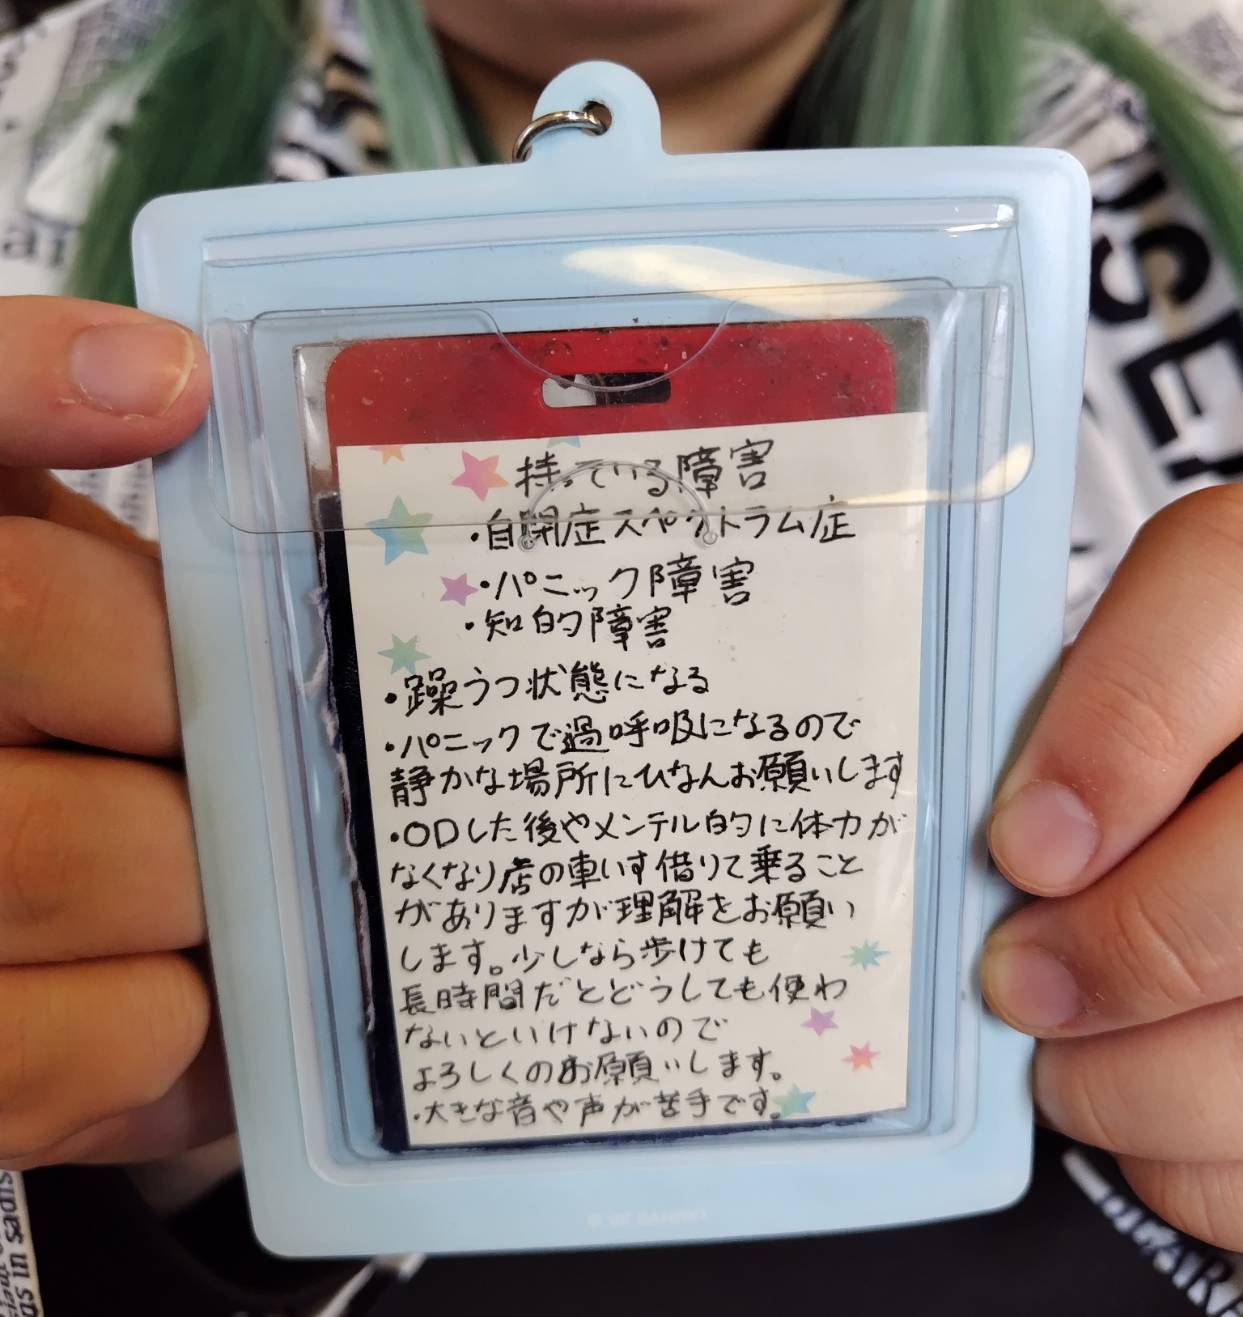 持っている障害
・自閉症スペクトラム症
・パニック障害
・知的障害
・躁うつ状態になる
・パニックで過呼吸になるので
静かな場所にひなんお願いします
・ODした後やメンテル的に体力が
なくなり店の車いす借りて乗ること
がありますが理解をお願い
します。少しなら歩けても
長時間だとどうしても使わ
ないといけないので
よろしくのお願いします。
・大きな音や声が苦手です。